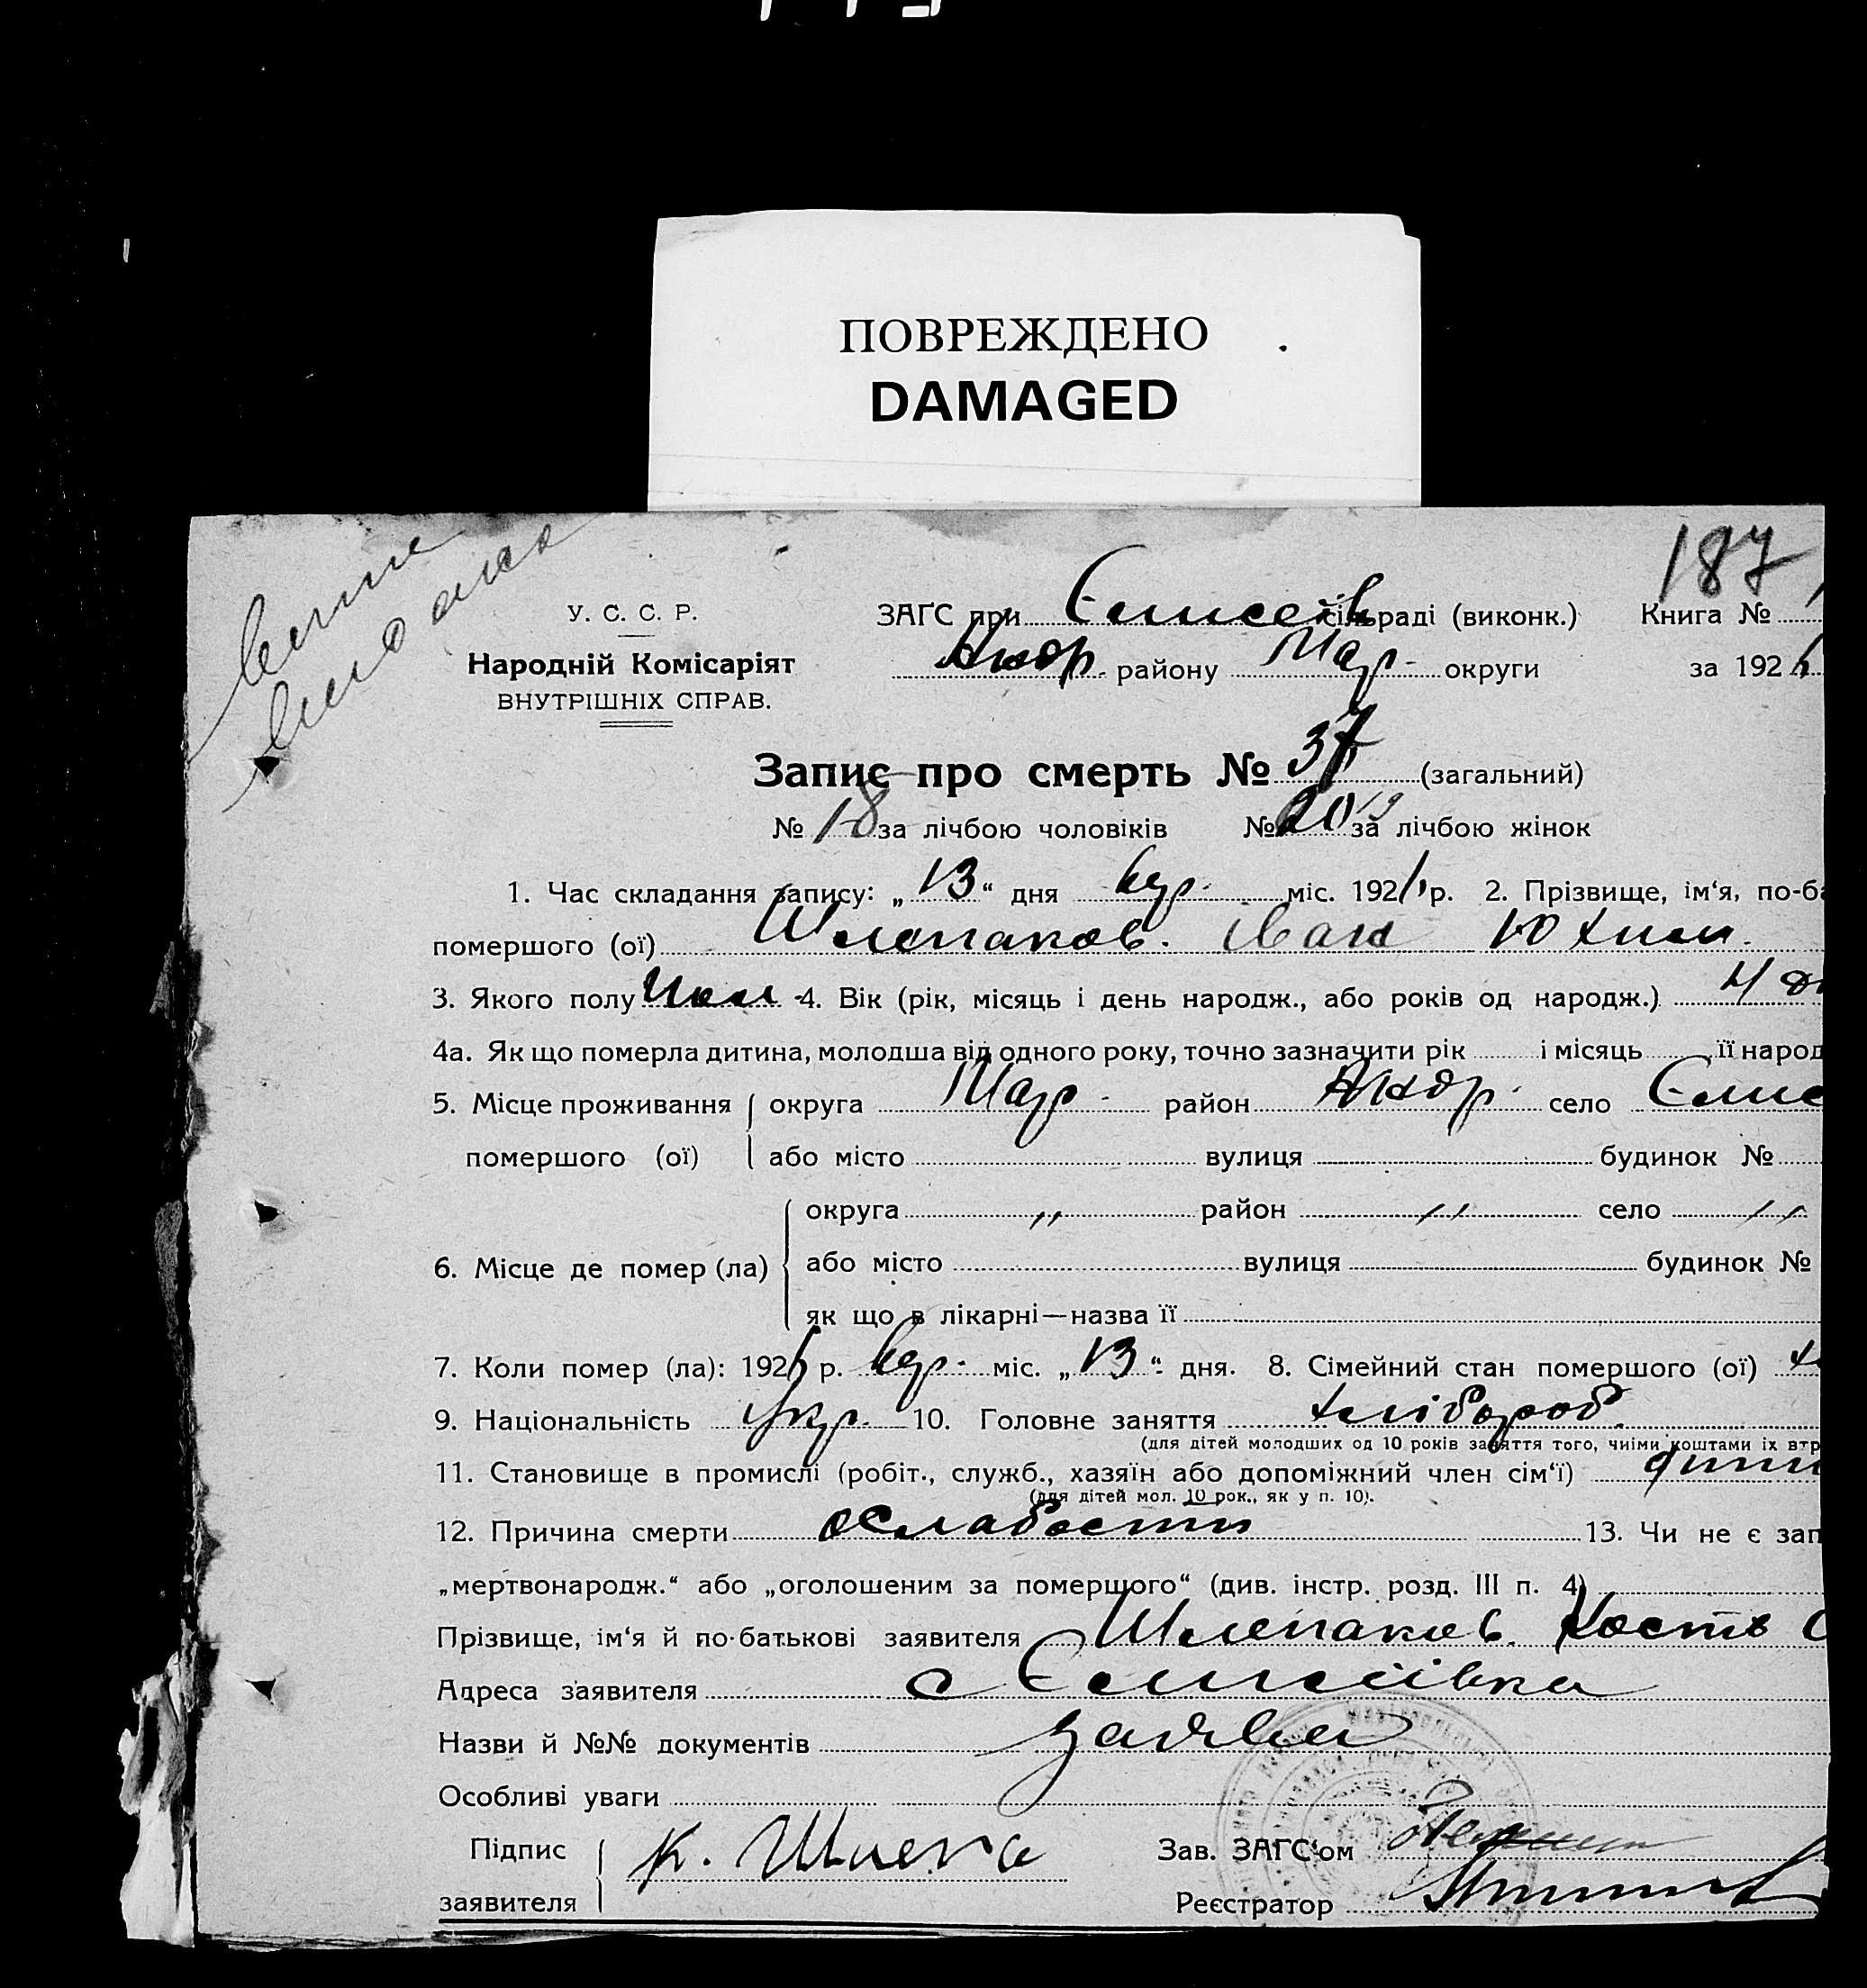 ПОВРЕЖДЕНО
DAMAGED
187
У. С. С. Р. ЗАГС при Єлисеїв сільраді (виконк.) Книга №
Народній Комісаріят Андр. району Мар. округи за 192
ВНУТРІШНІХ СПРАВ.
Запис про смерть № 37 (загальний)
№ 18 за лічбою чоловіків № 20 19 за лічбою жінок
1. Час складання запису: „13“ дня міс. 192 р. 2. Прізвище, ім‘я, по-ба
помершого (ої) Шлепаков. Іван Юхим.
3. Якого полу Чол 4. Вік (рік, місяць і день народж., або років од народж.) 4
4а. Як що померла дитина, молодша від одного року, точно зазначити рік і місяць її народ
5. Місце проживання округа Мар. район Андр. село Єлис
помершого (ої) або місто вулиця будинок №
округа „ район „ село „
6. Місце де помер (ла) або місто вулиця будинок №
як що в лікарні—назва її
7. Коли помер (ла): 192 р. міс. „13“ дня. 8. Сімейний стан помершого (ої)
9. Національність Укр. 10. Головне заняття хлібороб.
(для дітей молодших од 10 років заняття того, чиїми коштами їх втр
11. Становище в промислі (робіт., служб., хазяїн або допоміжний член сім‘ї)
(для дітей мол. 10 рок., як у п. 10).
12. Причина смерти ослабости 13. Чи не є зап
„мертвонародж.“ або „оголошеним за померщого“ (див. інстр. розд. III п. 4)
Прізвище, ім‘я й по-батькові заявителя Шлепаков. Кость С
Адреса заявителя с Єлисеївка
Назви й №№ документів заява
Особливі уваги
Підпис К. Шлепа Зав. ЗАГС‘ом
заявителя Реєстратор